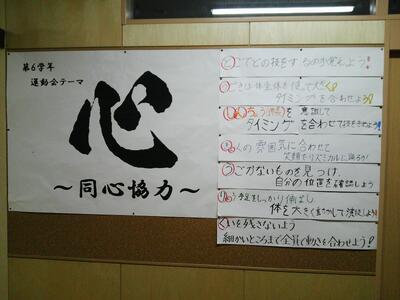 第6学年
運動会テーマ
心
～同心協力～
どこでどの技をするのか覚えよう!
うごきは体全体を使って大きく
タイミングを合わせよう!
を意識して
タイミングを合わせて技をきめよう!
人の雰囲気に合わせて
笑顔でリズミカルに踊ろう!
うごかないものを見つけ、
自分の位置を確認しよう
手足をしっかり伸ばし
体を大きく動かして演技しよう!
くいを残さないよう
細かいところまで全員で動きを合わせよう!